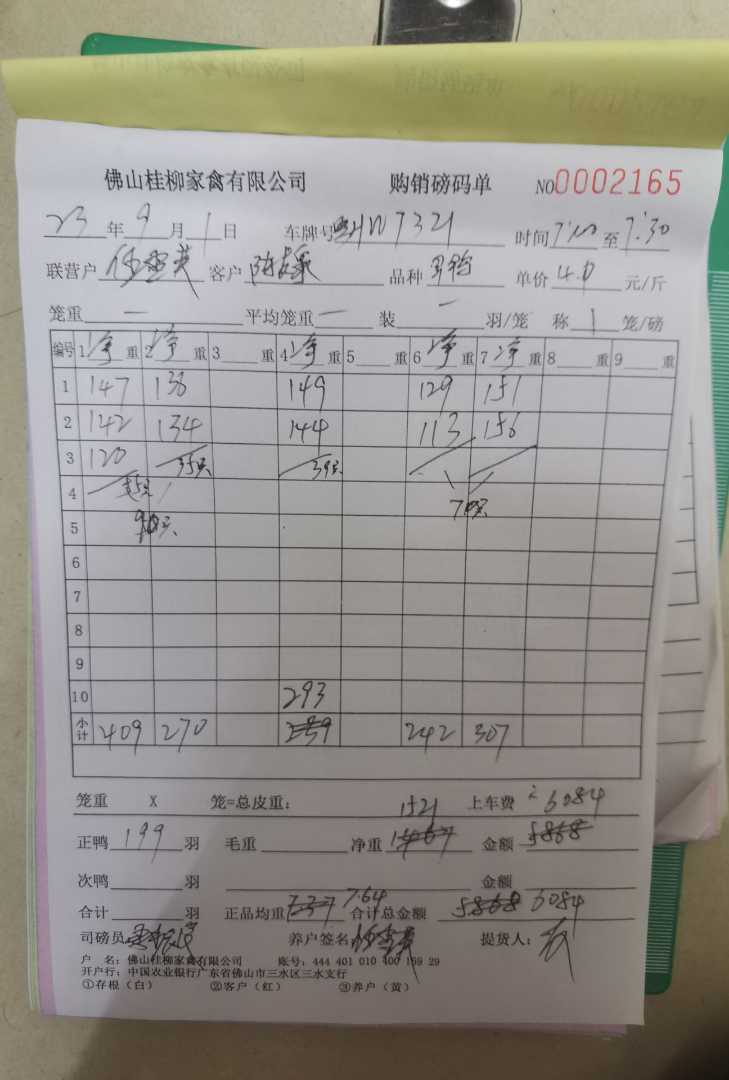 佛山桂柳家禽有限公司 购销磅码单 NO0002165
23年9月1日 车牌号 W7321 时间 7:10 至 7:30
联营户 客户 品种 单价 4.0 元/斤
笼重 一 平均笼重 一 装 一 羽/笼 称 1 笼/磅
编号 1 净重 2 净重 3 重 4 净重 5 重 6 净重 7 净重 8 重 9 重
1 147 136 149 129 151
2 142 134 144 113 156
3 120 35只 39只
4 35只
70只
5 90只
6
7
8
9
10 293
小计 409 270 239 242 307
笼重 X 笼=总皮重: 1521 上车费 6084
正鸭 199 羽 毛重 净重 1467 金额 5868
次鸭 羽 金额
合计 羽 正品均重 737 7.64 合计总金额 5868 6084
司磅员 养户签名 提货人:
户 名: 佛山桂柳家禽有限公司 账号: 444 401 010 400 159 29
开户行: 中国农业银行广东省佛山市三水区三水支行
①存根(白) ②客户(红) ③养户(黄)